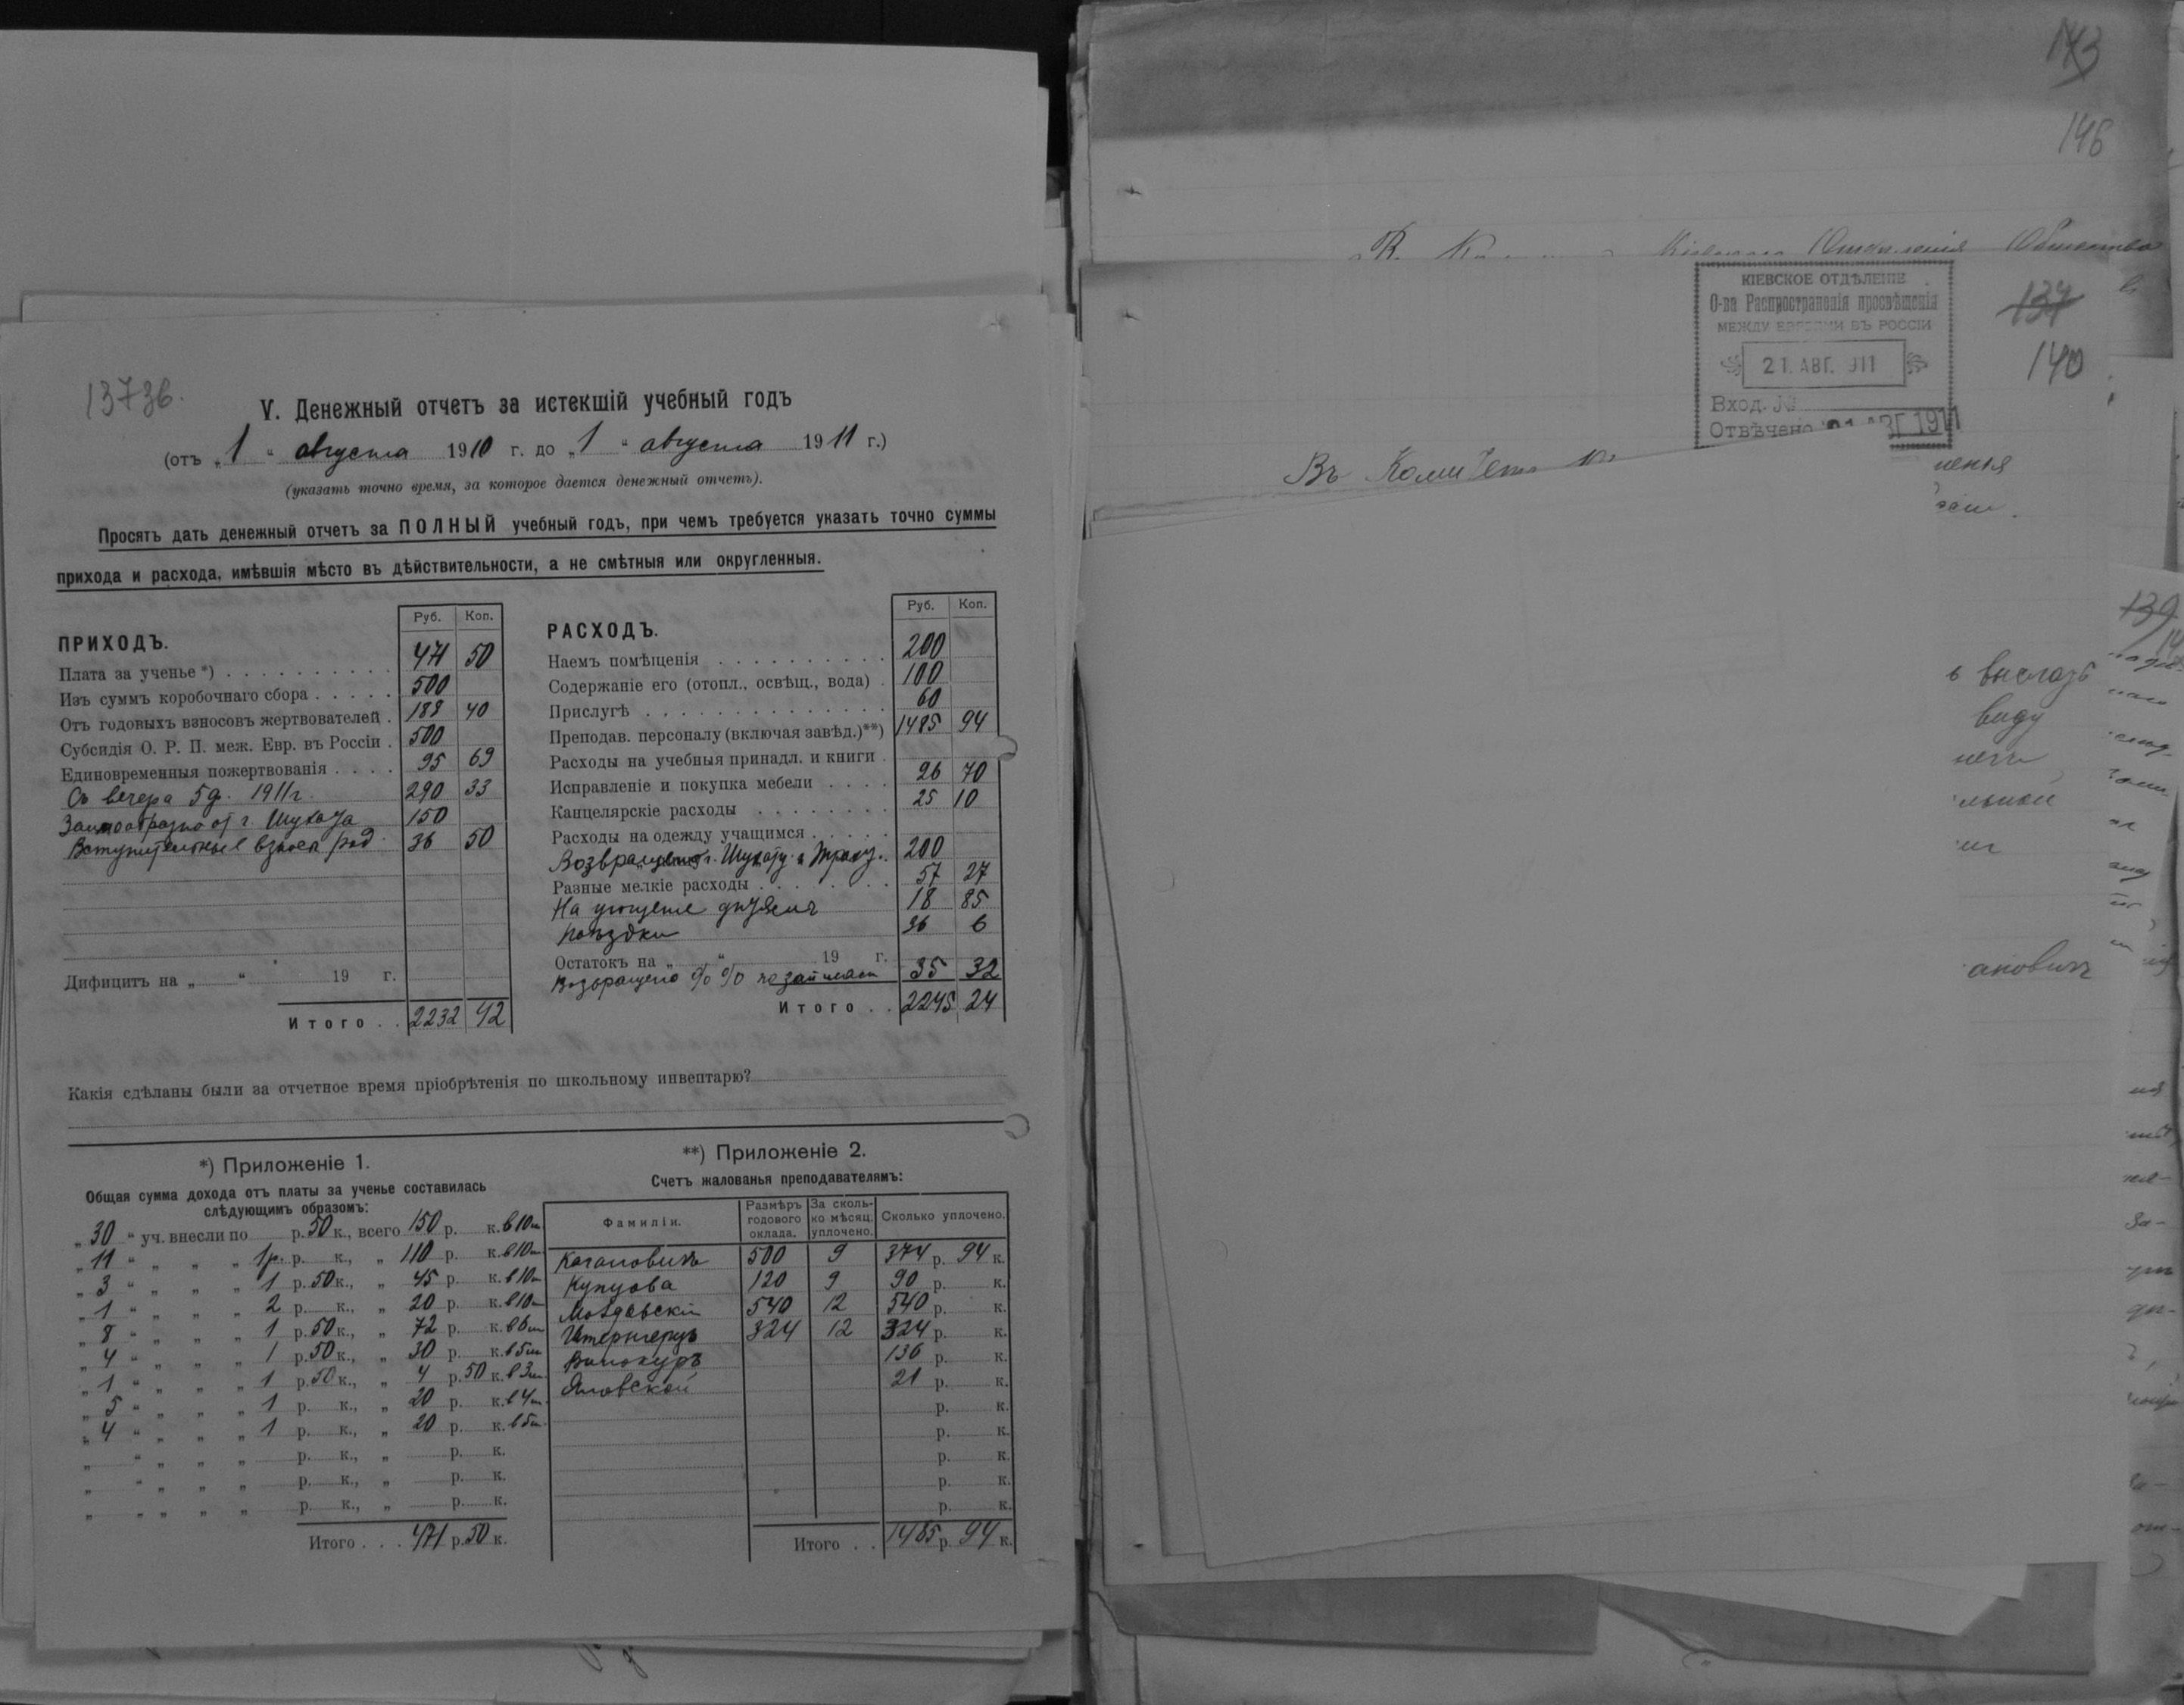 137зв.
V. Денежный отчетъ за истекшій учебный годъ
(отъ „1“ августа 1910 г. до „1“ августа 1911 г.)
(указать точно время, за которое дается денежный отчетъ).
Просятъ дать денежный отчетъ за ПОЛНЫЙ учебный годъ, при чемъ требуется указать точно суммы
прихода и расхода, имѣвшія мѣсто въ дѣйствительности, а не смѣтныя или округленныя.
ПРИХОДЪ. Руб. Коп.
Плата за ученье *) 471 50
Изъ суммъ коробочнаго сбора 500
Отъ годовыхъ взносовъ жертвователей 188 40
Субсидія О. Р. П. меж. Евр. въ Россіи 500
Единовременныя пожертвованія 95 69
Съ вечера 5 д. 1911 г. 290 33
Заимообразно от г. 150
Вступительные взносы 36 50
Дифицитъ на „ “ 19 г.
Итого . . 2232 42
РАСХОДЪ. Руб. Коп.
Наемъ помѣщенія 200
Содержаніе его (отопл., освѣщ., вода) 100
Прислугѣ 60
Преподав. персоналу (включая завѣд.)**) 1485 94
Расходы на учебныя принадл. и книги
Исправленіе и покупка мебели 26 70
Канцелярскіе расходы 25 10
Расходы на одежду учащимся
Возвращено г. 200
Разные мелкіе расходы 57 27
На 18 85
поѣздки 36 6
Остатокъ на „ “ 19 г.
Возвращено % % по займам 35 32
Итого . . 2245 24
Какія сдѣланы были за отчетное время пріобрѣтенія по школьному инвентарю?
*) Приложеніе 1.
Общая сумма дохода отъ платы за ученье составилась
слѣдующимъ образомъ:
„30“ уч. внесли по р. 50 к., всего 150 р. к. в 10 м
„11“ „ „ „ 1 р. р. к., „ 110 р. к. в 10 м
„3“ „ „ „ 1 р. 50 к., „ 45 р. к. в 10 м
„1“ „ „ „ 2 р. к., „ 20 р. к. в 10 м
„8“ „ „ „ 1 р. 50 к., „ 72 р. к. в 6 м
„4“ „ „ „ 1 р. 50 к., „ 30 р. к. в 5 м
„1“ „ „ „ 1 р. 50 к., „ 4 р. 50 к. в 3 м
„5“ „ „ „ 1 р. к., „ 20 р. к. в 4 м
„4“ „ „ „ 1 р. к., „ 20 р. к. в 5 м
„ “ „ „ „ р. к., „ р. к.
„ “ „ „ „ р. к., „ р. к.
„ „ „ „ „ р. к., „ р. к.
Итого . . . 471 р. 50 к.
**) Приложеніе 2.
Счетъ жалованья преподавателямъ:
Фамиліи. Размѣръ годового оклада. За сколько мѣсяц. уплочено. Сколько уплочено.
Кагановичъ 500 9 374 р. 94 к.
Купцова 120 9 90 р. к.
Молдавскій 540 12 540 р. к.
Штернгерцъ 324 12 324 р. к.
Винокуръ 136 р. к.
Яновской 21 р. к.
р. к.
р. к.
р. к.
р. к.
р. к.
Итого . . 1485 р. 94 к.
143
146
Кіевскаго Отдѣленія Общества
КІЕВСКОЕ ОТДѢЛЕНІЕ
О-ва Распространенія просвѣщенія
МЕЖДУ ЕВРЕЯМИ ВЪ РОССІИ
21. АВГ. 911
Вход. №
Отвѣчено 21 АВГ 1911
137
140
Въ Комитетъ
139
виду
ановичъ